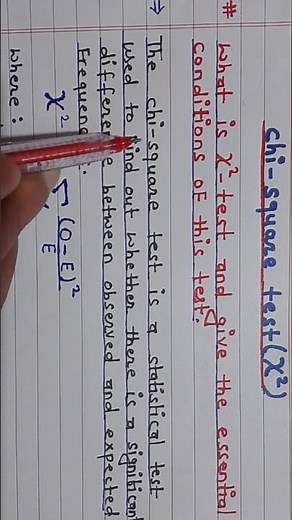 chi-square test (χ²)
# What is χ²-test and give the essential
conditions of this test:
⇒ The chi-square test is a statistical test
used to find out whether there is a significant
difference between observed and expected
χ² Σ (O-E)²
E
where: